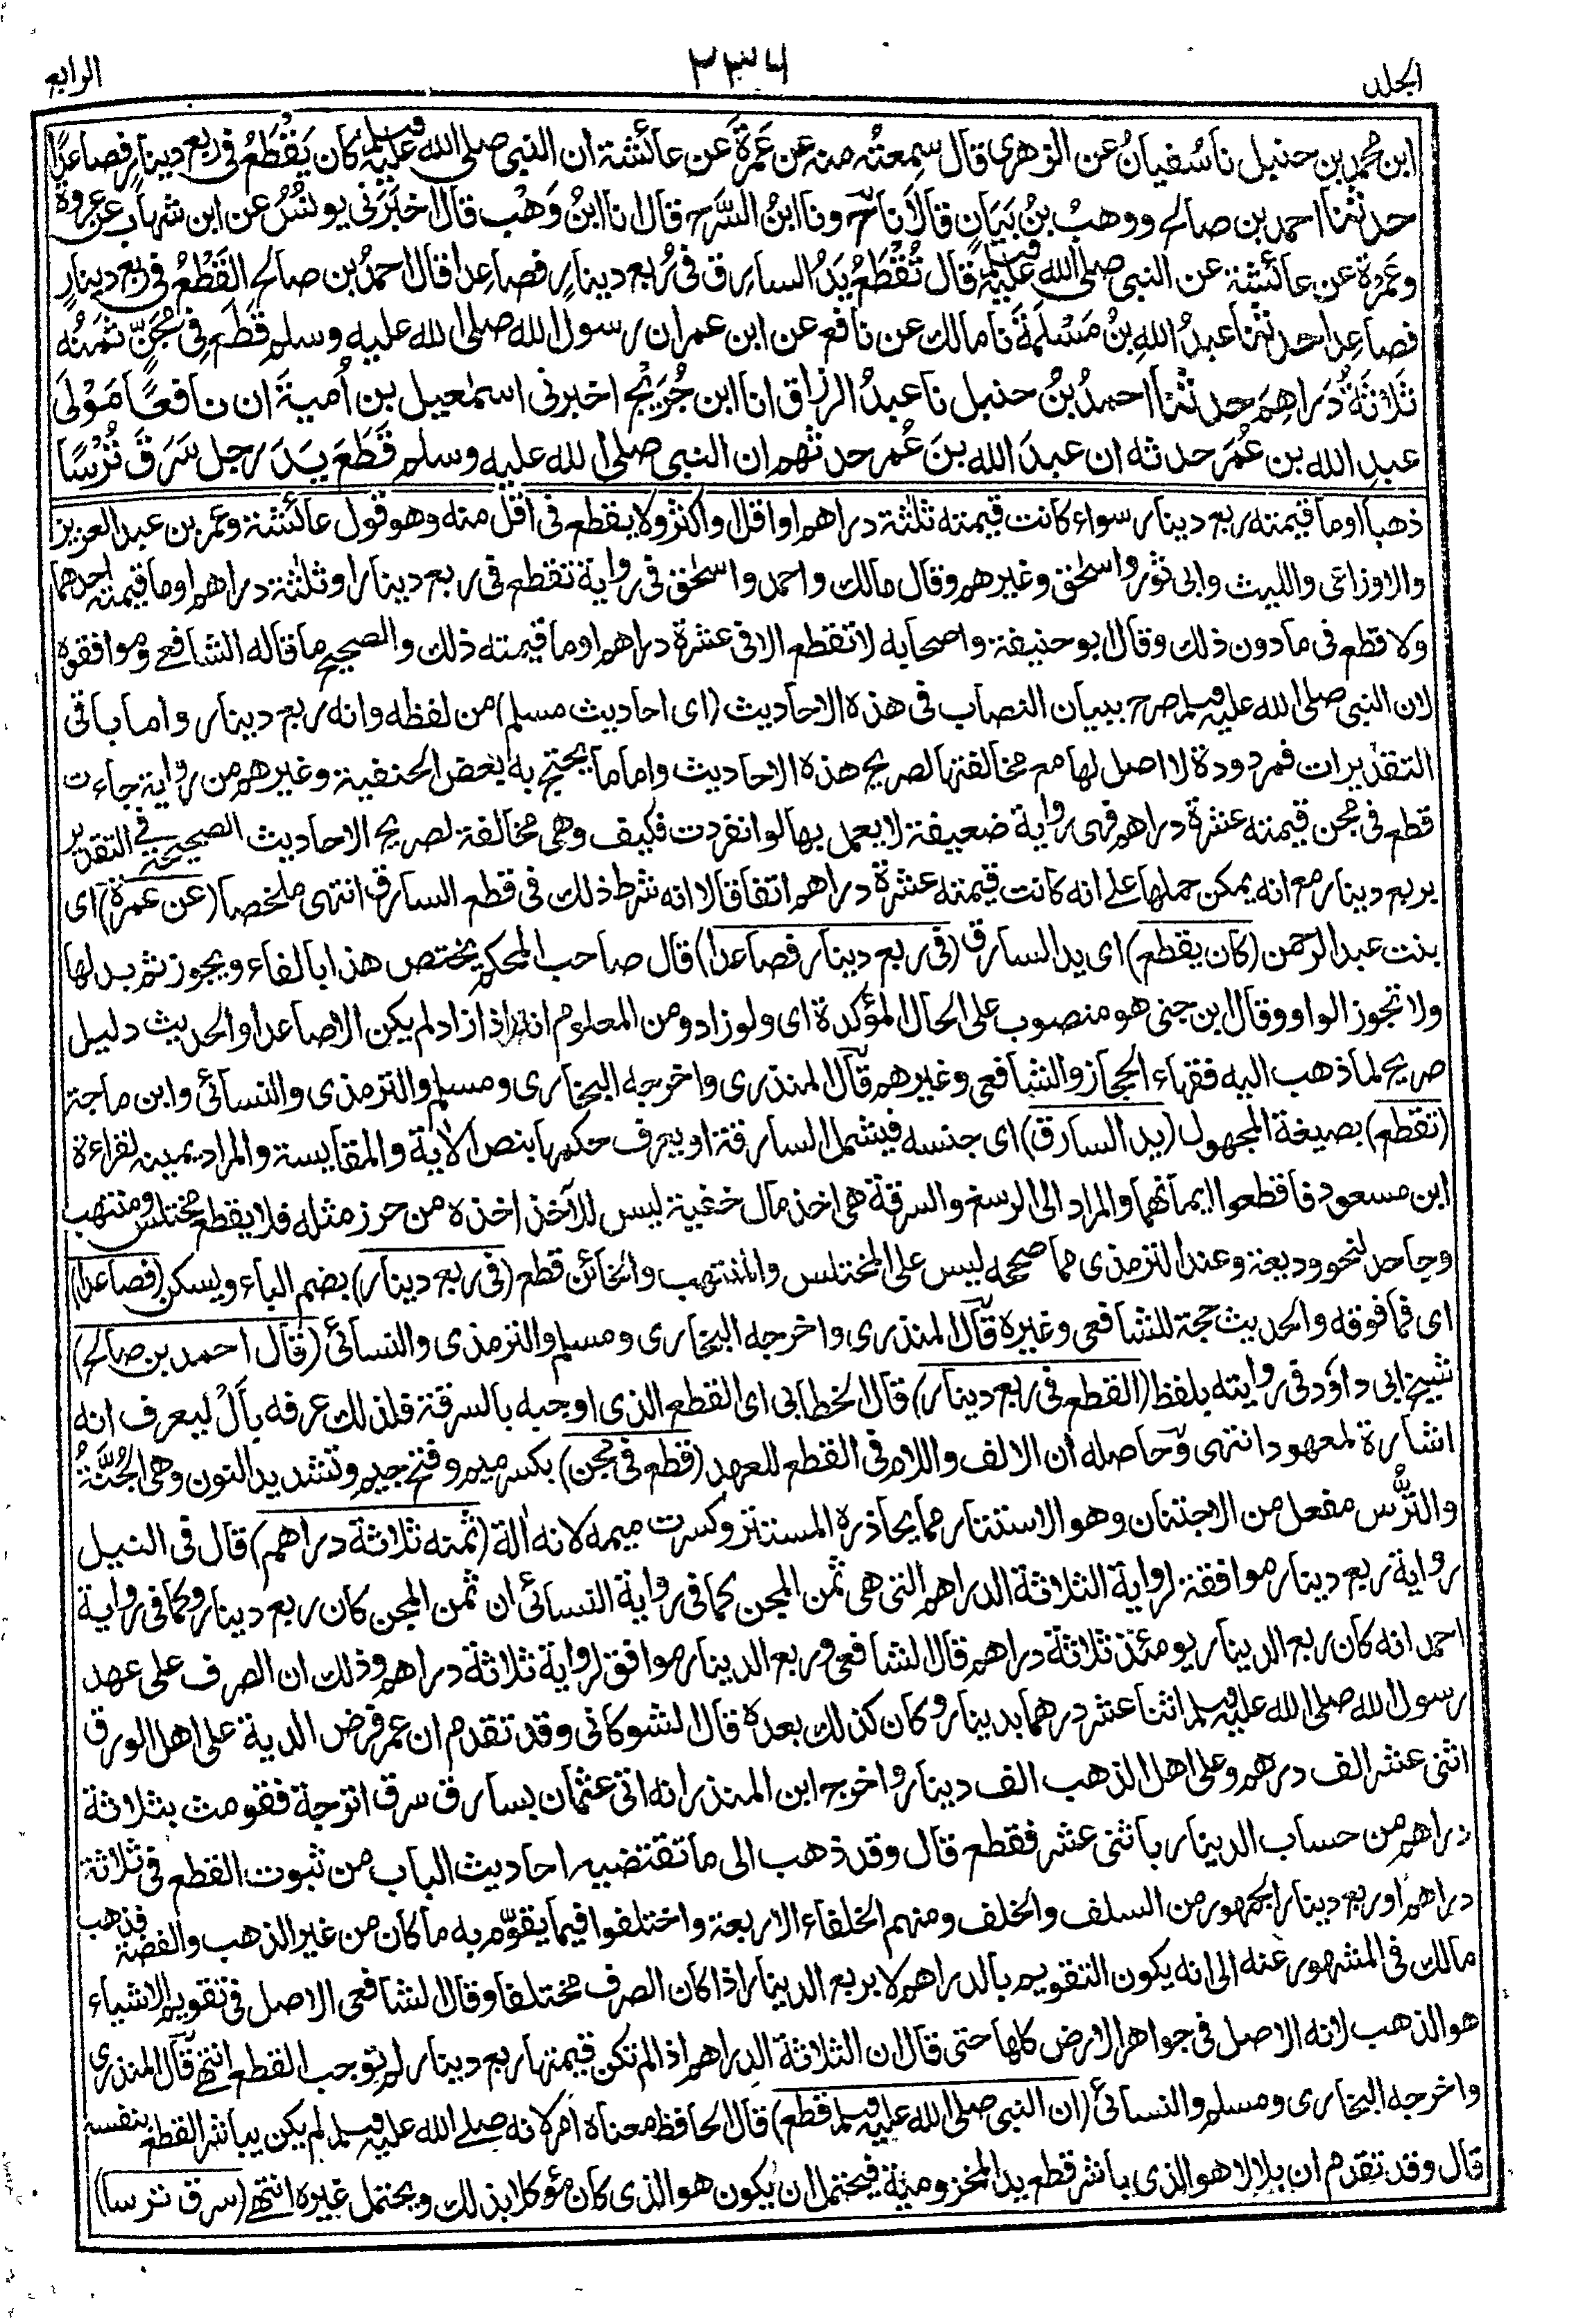 الجلد
٢٣٦
الرابع
ابنُ محمدِ بن حنبل نا سُفيانُ عن الزهرى قال سمعتُه منه عن عَمرةَ عن عائشة ان النبى صلى الله عليه وسلم كان يَقْطَعُ فى رُبع دينارٍ فصاعدًا
حدثنا احمد بن صالح ووهبُ بنُ بَيَانٍ قالا نا ح ونا ابنُ السَّرح قال انا ابنُ وَهْب قال اخبَرَنى يونسُ عن ابن شهاب عن عروة
وعَمْرَة عن عائشة عن النبى صلى الله عليه وسلم قال تُقْطَعُ يَدُ السارق فى رُبع دينارٍ فصاعِدا قال احمدُ بن صالح القَطْعُ فى ربع دينارٍ
فصاعِدا حدثنا عبدُ اللهِ بنُ مَسْلَمَةَ نا مالك عن نافع عن ابن عمر ان رسول الله صلى الله عليه وسلم قَطَعَ فِى مِجَنٍّ ثَمَنُه
ثَلَاثَةُ دَرَاهِمَ حدثنا احمدُ بنُ حنبل نا عبدُ الرزاق انا ابن جُرَيْج اخبرنى اسمٰعيل بن اُميةَ ان نافعًا مَوْلَى
عبدِ الله بن عُمَرَ حدثه ان عبدَ الله بنَ عُمر حدثهم ان النبى صلى الله عليه وسلم قَطَعَ يَدَ رجل سَرَقَ تُرْسًا
ذهبا او ما قيمته ربع دينار سواء كانت قيمته ثلثة دراهم او اقل واكثر ولا يقطع فى اقل منه وهو قول عائشة وعمر بن عبد العزيز
والاوزاعى والليث وابى ثور واسحٰق وغيرهم وقال مالك واحمد واسحٰق فى رواية تقطع فى ربع دينار او ثلثة دراهم او ما قيمته احدهما
ولا قطع فى ما دون ذلك وقال ابو حنيفة واصحابه لا تقطع الا فى عشرة دراهم او ما قيمته ذلك والصحيح ما قاله الشافعى وموافقوه
لان النبى صلى الله عليه وسلم صرح ببيان النصاب فى هذه الاحاديث (اى احاديث مسلم) من لفظه وانه ربع دينار واما باقى
التقديرات فمردودة لا اصل لها مع مخالفتها لصريح هذه الاحاديث واما ما يحتج به بعض الحنفية وغيرهم من رواية جاءت
قطع فى مجن قيمته عشرة دراهم فهى رواية ضعيفة لا يعمل بها لو انفردت فكيف وهى مخالفة لصريح الاحاديث الصحيحة فى التقدير
بربع دينار مع انه يمكن حملها على انه كانت قيمته عشرة دراهم اتفاقا لا انه شرط ذلك فى قطع السارق انتهى ملخصا (عن عمرة) اى
بنت عبد الرحمن (كان يقطع) اى يد السارق (فى ربع دينار فصاعدا) قال صاحب المحكم يختص هذا بالفاء ويجوز ثم بدلها
ولا تجوز الواو وقال ابن جنى هو منصوب على الحال المؤكدة اى ولو زاد ومن المعلوم انه اذا زاد لم يكن الا صاعدا والحديث دليل
صريح لما ذهب اليه فقهاء الحجاز والشافعى وغيرهم قال المنذرى واخرجه البخارى ومسلم والترمذى والنسائى وابن ماجة
(تقطع) بصيغة المجهول (يد السارق) اى جنسه فيشمل السارقة او يعرف حكمها بنص الآية والمقايسة والمراد يمينه لقراءة
ابن مسعود فاقطعوا ايمانهما والمراد الى الرسغ والسرقة هى اخذ مال خفية ليس للآخذ اخذه من حرز مثله فلا يقطع مختلس ومنتهب
وجاحد لنحو وديعة وعند الترمذى مما صححه ليس على المختلس والمنتهب والخائن قطع (فى ربع دينار) بضم الباء ويسكن (فصاعدا)
اى فما فوقه والحديث حجة للشافعى وغيره قال المنذرى واخرجه البخارى ومسلم والترمذى والنسائى (قال احمد بن صالح)
شيخ ابى داؤد فى روايته بلفظ (القطع فى ربع دينار) قال الخطابى اى القطع الذى اوجبه بالسرقة فلذلك عرفه بأَلْ ليعرف انه
اشارة لمعهود انتهى وحاصله ان الالف واللام فى القطع للعهد (قطع فى مجن) بكسر ميم وفتح جيم وتشديد النون وهى الجُنَّةُ
والتُّرس مفعل من الاجتنان وهو الاستتار مما يحاذره المستتر وكسرت ميمه لانه اٰلة (ثمنه ثلاثة دراهم) قال فى النيل
رواية ربع دينار موافقة لرواية الثلاثة الدراهم التى هى ثمن المجن كما فى رواية النسائى ان ثمن المجن كان ربع دينار وكما فى رواية
احمد انه كان ربع الدينار يومئذ ثلاثة دراهم قال الشافعى وربع الدينار موافق لرواية ثلاثة دراهم وذلك ان الصرف على عهد
رسول الله صلى الله عليه وسلم اثنا عشر درهما بدينار وكان كذلك بعده قال الشوكانى وقد تقدم ان عمر فرض الدية على اهل الورق
اثنى عشر الف درهم وعلى اهل الذهب الف دينار واخرج ابن المنذر انه اتى عثمان بسارق سرق اترجة فقومت بثلاثة
دراهم من حساب الدينار باثنى عشر فقطع قال وقد ذهب الى ما تقتضيه احاديث الباب من ثبوت القطع فى ثلاثة
دراهم او ربع دينار الجمهور من السلف والخلف ومنهم الخلفاء الاربعة واختلفوا فيما يقوّم به ما كان من غير الذهب والفضة فذهب
مالك فى المشهور عنه الى انه يكون التقويم بالدراهم لا بربع الدينار اذا كان الصرف مختلفا وقال الشافعى الاصل فى تقويم الاشياء
هو الذهب لانه الاصل فى جواهر الارض كلها حتى قال ان الثلاثة الدراهم اذا لم تكن قيمتها ربع دينار لم توجب القطع انتهى قال المنذرى
واخرجه البخارى ومسلم والنسائى (ان النبى صلى الله عليه وسلم قطع) قال الحافظ معناه امر لانه صلى الله عليه وسلم لم يكن يباشر القطع بنفسه
قال وقد تقدم ان بلالا هو الذى باشر قطع يد المخزومية فيحتمل ان يكون هو الذى كان مؤكلا بذلك ويحتمل غيره انتهى (سرق ترسا)